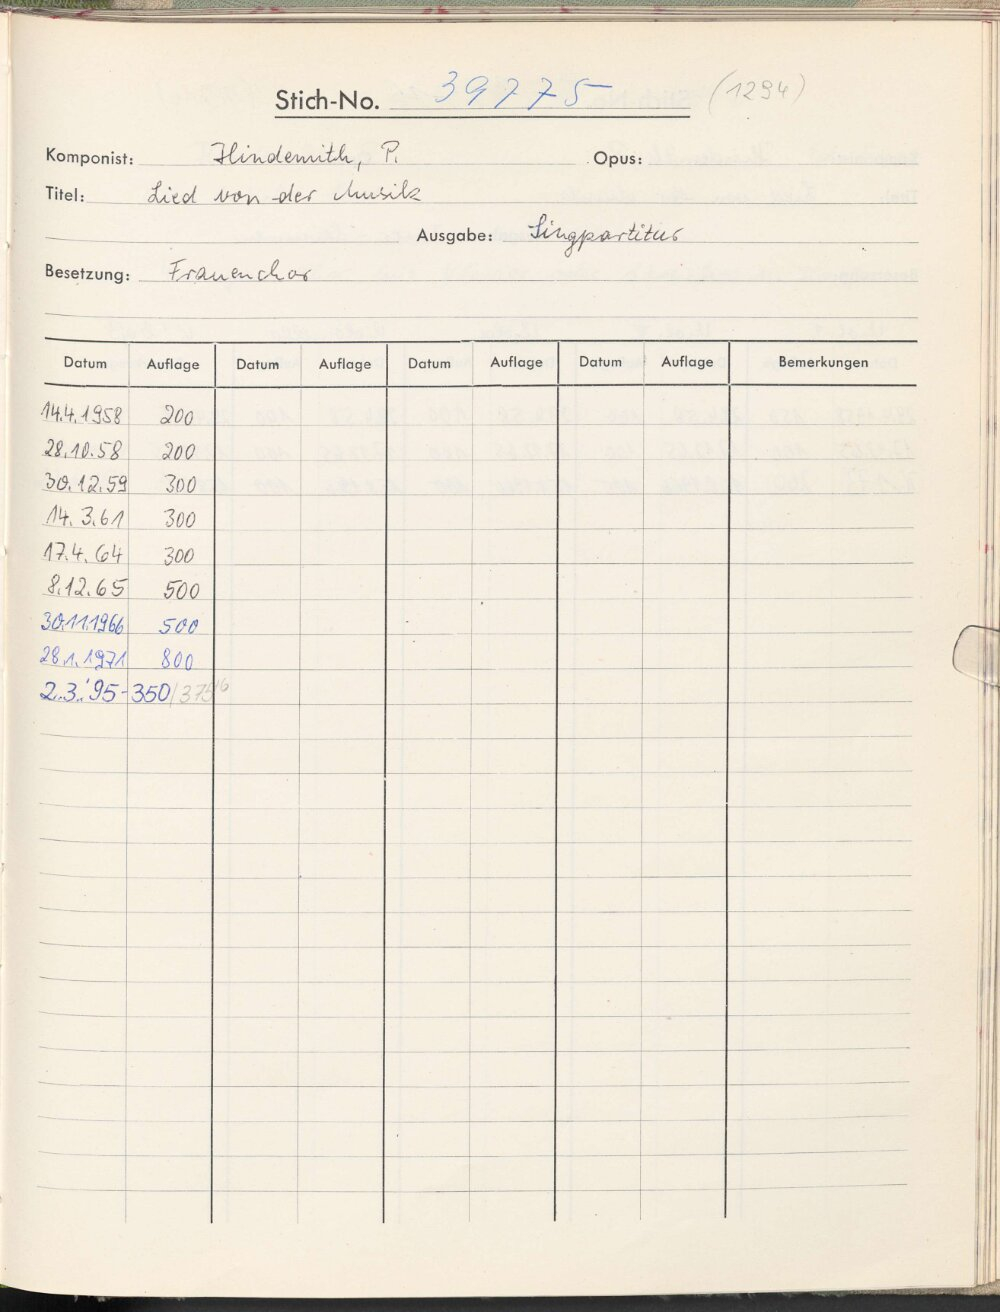 Stich-No. 39775 (1294)
Komponist: Hindemith, P. Opus:
Titel: Lied von der Musik
Ausgabe: Singpartitur
Besetzung: Frauenchor
Datum Auflage Datum Auflage Datum Auflage Datum Auflage Bemerkungen
14.4.1958 200
28.10.58 200
30.12.59 300
14.3.61 300
17.4.64 300
8.12.65 500
30.11.1966 500
28.1.1971 800
2.3.'95 - 350/375